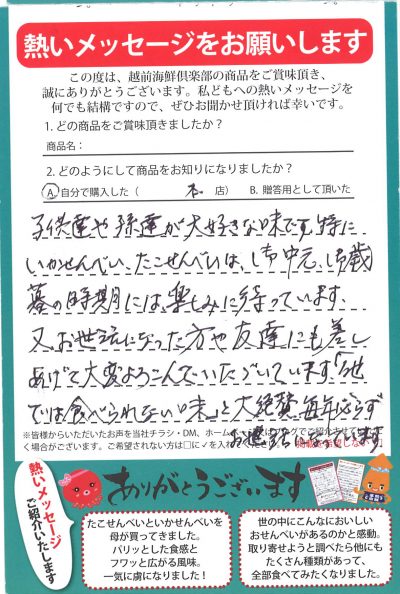 熱いメッセージをお願いします
この度は、越前海鮮倶楽部の商品をご賞味頂き、
誠にありがとうございます。私どもへの熱いメッセージを
何でも結構ですので、ぜひお聞かせ頂ければ幸いです。
1. どの商品をご賞味頂きましたか?
商品名:
2. どのようにして商品をお知りになりましたか?
A. 自分で購入した( 本 店) B. 贈答用として頂いた
子供達や孫達が大好きな味です。特に
いかせんべい、たこせんべいは、お中元、お歳
暮の時期には、楽しみに待っています。
又、お世話になった方や友達にも差し
あげて大変よろこんでいただいています「他
では食べられない味」と大絶賛毎年必ず
お世話になっています
※皆様からいただいたお声を当社チラシ・DM、ホームページ
く場合がございます。ご希望されない方は□に✓を入れ
掲載を希望しない
熱いメッセージ
ご紹介いたします
ありがとうございます
たこせんべいといかせんべいを
母が買ってきました。
パリッとした食感と
フワッと広がる風味。
一気に虜になりました!
世の中にこんなにおいしい
おせんべいがあるのかと感動。
取り寄せようと調べたら他にも
たくさん種類があって、
全部食べてみたくなりました。